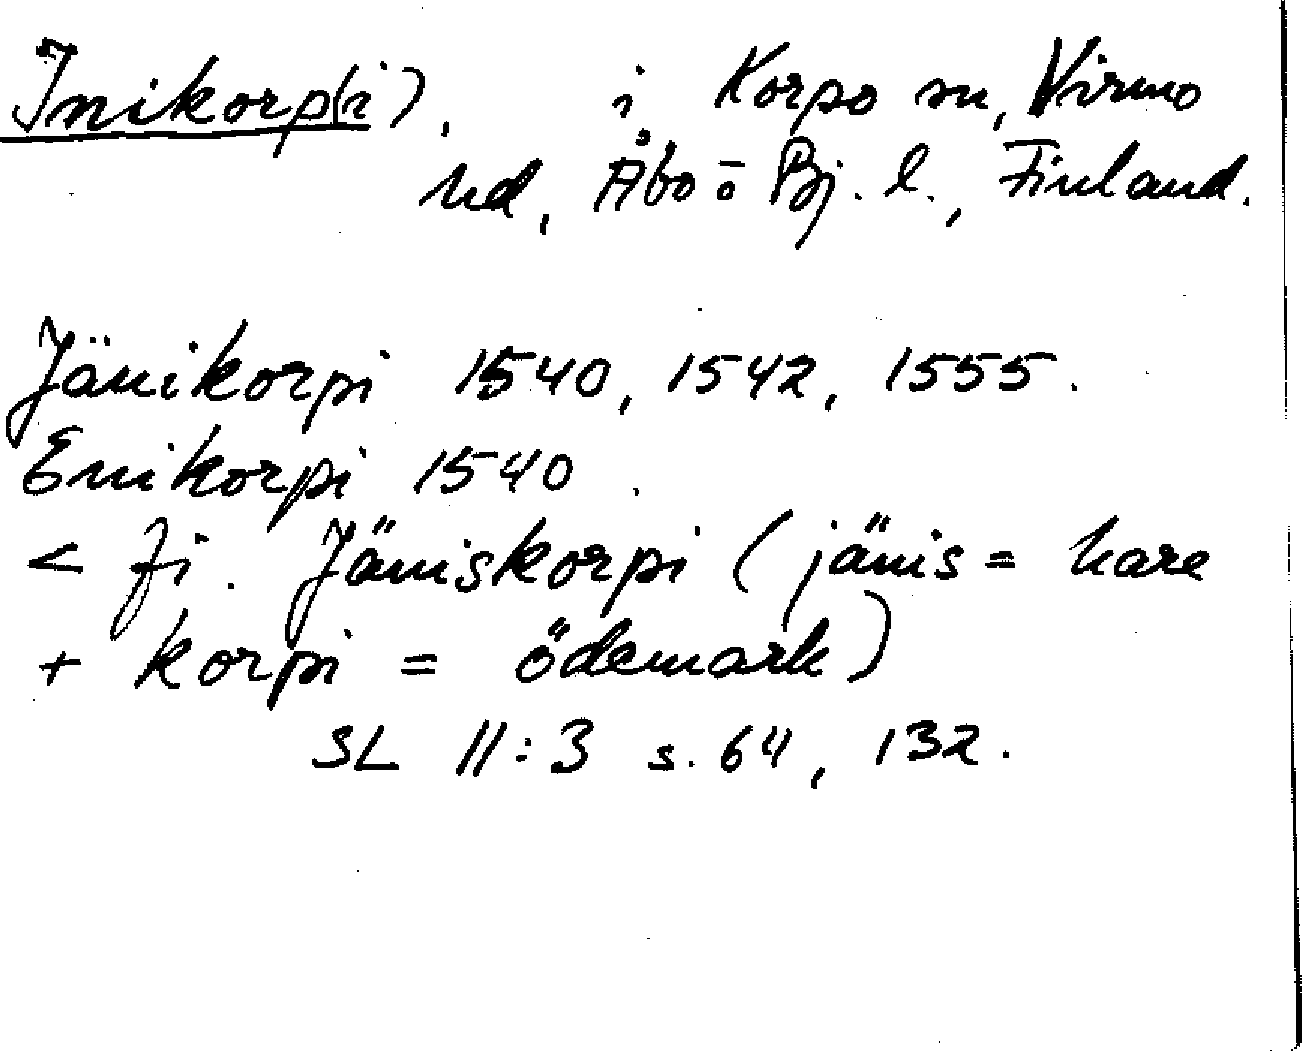 Inikorp(i), i Korpo sn, Virmo
hd, Åbo o Bj. l., Finland.
Jänikorpi 1540, 1542, 1555.
Enikorpi 1540.
< fi. Jäniskorpi (jänis = hare
+ korpi = ödemark)
SL II:3 s. 64, 132.